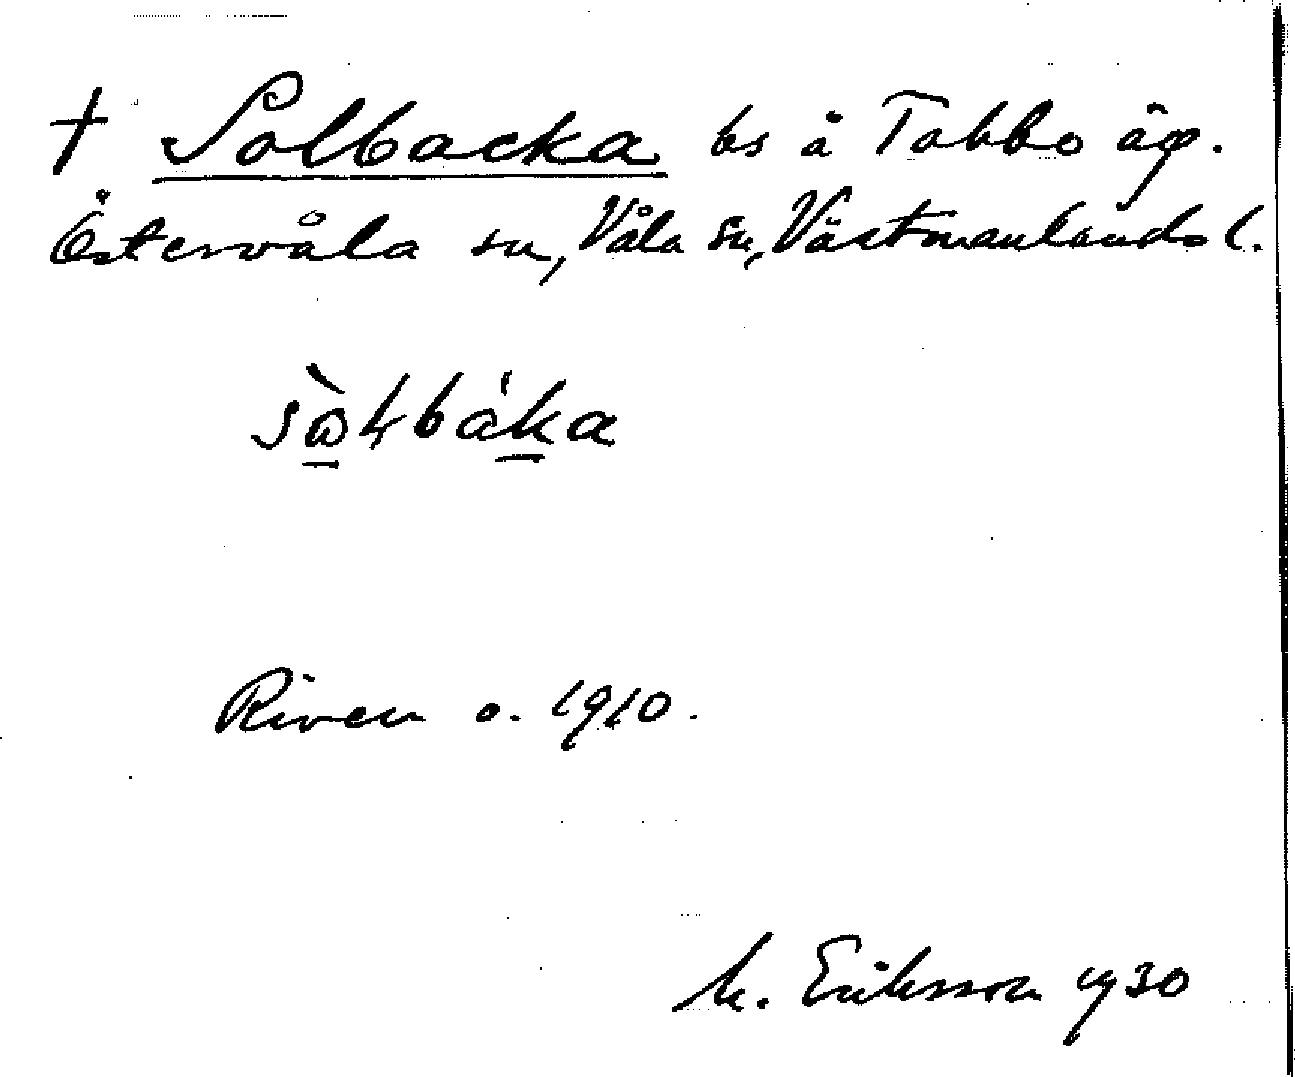 † Solbacka bs å Tabbo äg.
Östervåla sn, Våla hd, Västmanlands l.
Riven o. 1910.
M. Eriksson 1930